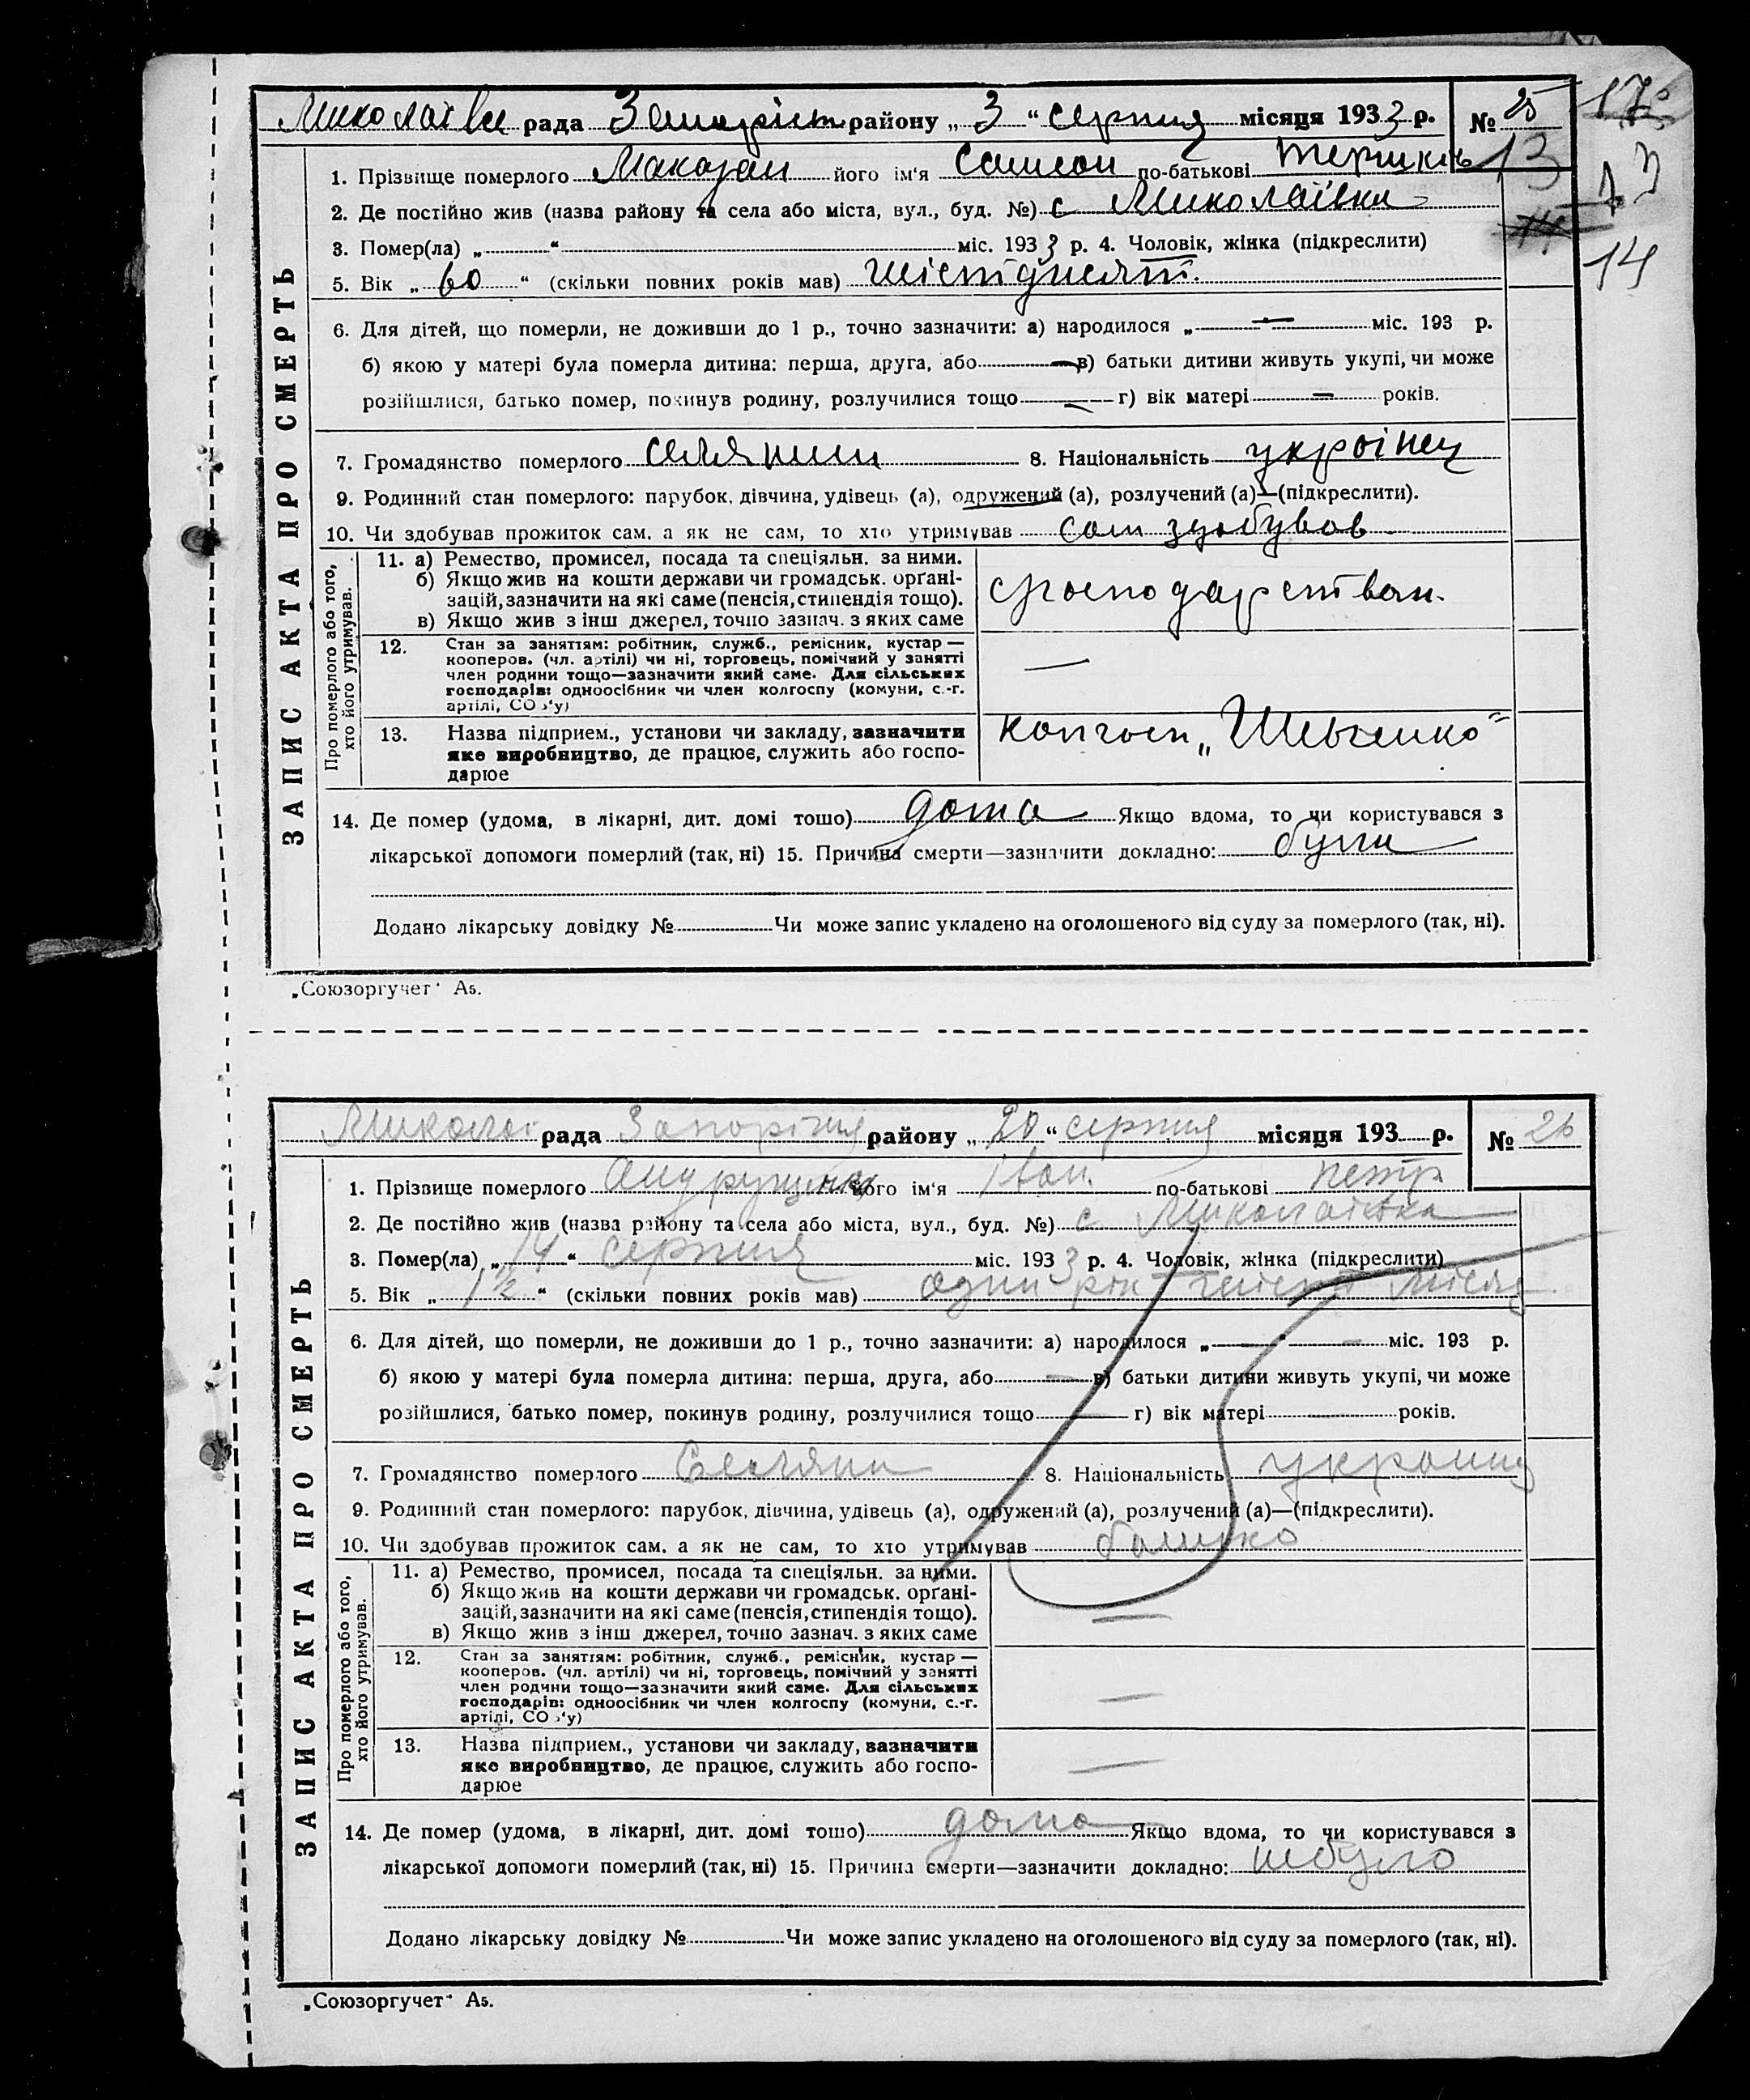 Миколаївс рада Запоріжс району „ 3 “ серпня місяця 1933 р. № 25
17
13
1. Прізвище померлого його ім'я Самсон по-батькові
2. Де постійно жив (назва району та села або міста, вул., буд. №) с Миколаївка
3. Помер(ла) „ “ міс. 1933 р. 4. Чоловік, жінка (підкреслити)
14
5. Вік „ 60 “ (скільки повних років мав) шістдисят.
6. Для дітей, що померли, не доживши до 1 р., точно зазначити: а) народилося „ — міс. 193 р.
б) якою у матері була померла дитина: перша, друга, або — в) батьки дитини живуть укупі, чи може
розійшлися, батько помер, покинув родину, розлучилися тощо — г) вік матері — років.
7. Громадянство померлого селянин 8. Національність україінец
9. Родинний стан померлого: парубок, дівчина, удівець (а), одружений (а), розлучений (а)—(підкреслити).
10. Чи здобував прожиток сам, а як не сам, то хто утримував сам здобував
ЗАПИС АКТА ПРО СМЕРТЬ
Про померлого або того, хто його утримував.
11. а) Ремество, промисел, посада та спеціяльн. за ними.
б) Якщо жив на кошти держави чи громадськ. орґані-
зацій, зазначити на які саме (пенсія, стипендія тощо).
в) Якщо жив з інш джерел, точно зазнач. з яких саме
12. Стан за заняттям: робітник, служб., ремісник, кустар —
кооперов. (чл. артілі) чи ні, торговець, помічний у занятті
член родини тощо—зазначити який саме. Для сільських
господарів: одноосібник чи член колгоспу (комуни, с.-г.
артілі, СОЗ'у)
—
13. Назва підприєм., установи чи закладу, зазначити
яке виробництво, де працює, служить або госпо-
дарює
колгосп
14. Де помер (удома, в лікарні, дит. домі тощо) дома Якщо вдома, то чи користувався з
лікарської допомоги померлий (так, ні) 15. Причина смерти—зазначити докладно:
Додано лікарську довідку № Чи може запис укладено на оголошеного від суду за померлого (так, ні).
„Союзоргучет“ А5.
Миколаї рада Запоріжжя району „ 20 “ серпня місяця 193 р. № 26
1. Прізвище померлого Андрущенко його ім'я Іван. по-батькові Петр
2. Де постійно жив (назва району та села або міста, вул., буд. №) с Миколаївка
3. Помер(ла) „ 14 “ серпня міс. 1933 р. 4. Чоловік, жінка (підкреслити)
5. Вік „ 1 ½ “ (скільки повних років мав) один рік шість місяц
6. Для дітей, що померли, не доживши до 1 р., точно зазначити: а) народилося „ — “ — міс. 193 р.
б) якою у матері була померла дитина: перша, друга, або — в) батьки дитини живуть укупі, чи може
розійшлися, батько помер, покинув родину, розлучилися тощо — г) вік матері — років.
7. Громадянство померлого Селянин 8. Національність
9. Родинний стан померлого: парубок, дівчина, удівець (а), одружений (а), розлучений (а)—(підкреслити).
10. Чи здобував прожиток сам, а як не сам, то хто утримував батько
15
ЗАПИС АКТА ПРО СМЕРТЬ
Про померлого або того, хто його утримував.
11. а) Ремество, промисел, посада та спеціяльн. за ними.
б) Якщо жив на кошти держави чи громадськ. орґані-
зацій, зазначити на які саме (пенсія, стипендія тощо).
в) Якщо жив з інш джерел, точно зазнач. з яких саме
—
12. Стан за заняттям: робітник, служб., ремісник, кустар —
кооперов. (чл. артілі) чи ні, торговець, помічний у занятті
член родини тощо—зазначити який саме. Для сільських
господарів: одноосібник чи член колгоспу (комуни, с.-г.
артілі, СОЗ'у)
—
13. Назва підприєм., установи чи закладу, зазначити
яке виробництво, де працює, служить або госпо-
дарює
—
14. Де помер (удома, в лікарні, дит. домі тощо) дома Якщо вдома, то чи користувався з
лікарської допомоги померлий (так, ні) 15. Причина смерти—зазначити докладно:
Додано лікарську довідку № Чи може запис укладено на оголошеного від суду за померлого (так, ні).
„Союзоргучет“ А5.